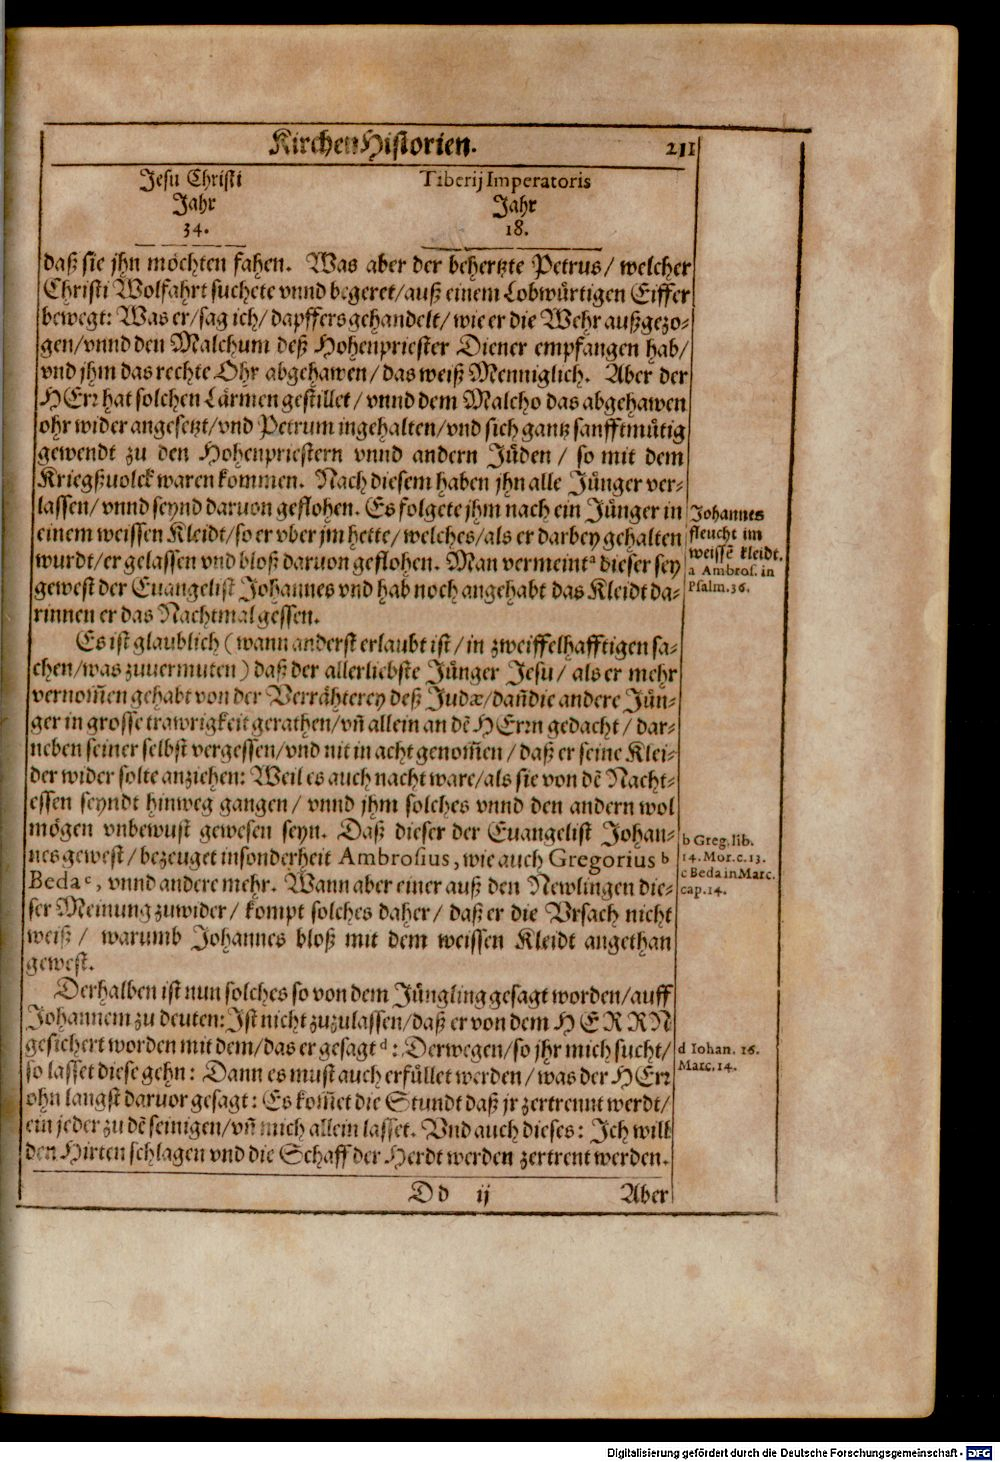 KirchenHistorien. 211
Jesu Christi
Jahr
34.
Tiberij Imperatoris
Jahr
18.
daß sie jhn möchten fahen. Was aber der behertzte Petrus/ welcher
Christi Wolfahrt suchete vnnd begeret/ auß einem Lobwürtigen Eiffer
bewegt: Was er/ sag ich/ dapffers gehandelt/ wie er die Wehr außgezo-
gen/ vnnd den Malchum deß Hohenpriester Diener empfangen hab/
vnd jhm das rechte Ohr abgehawen/ das weiß Menniglich. Aber der
HErr hat solchen Lärmen gestillet/ vnnd dem Malcho das abgehawen
ohr wider angesetzt/ vnd Petrum ingehalten/ vnd sich gantz sanfftmütig
gewendt zu den Hohenpriestern vnnd andern Jüden/ so mit dem
Kriegßuolck waren kommen. Nach diesem haben jhn alle Jünger ver-
lassen/ vnnd seynd daruon geflohen. Es folgete jhm nach ein Jünger in
einem weissen Kleidt/ so er vber jm hette/ welches/ als er darbey gehalten
wurdt/ er gelassen vnd bloß daruon geflohen. Man vermeint a dieser sey
gewest der Euangelist Johannes vnd hab noch angehabt das Kleidt da-
rinnen er das Nachtmal gessen.
Johannes
fleucht im
weissē kleidt.
a Ambros. in
Psalm. 36.
Es ist glaublich (wann anderst erlaubt ist/ in zweiffelhafftigen sa-
chen/ was zuuermuten) daß der allerliebste Jünger Jesu/ als er mehr
vernom̃en gehabt von der Verrähterey deß Judæ/ dañ die andere Jün-
ger in grosse trawrigkeit gerathen/ vñ allein an dē HErrn gedacht/ dar-
neben seiner selbst vergessen/ vnd nit in acht genom̃en/ daß er seine Klei-
der wider solte anziehen: Weil es auch nacht ware/ als sie von dē Nacht-
essen seyndt hinweg gangen/ vnnd jhm solches vnnd den andern wol
mögen vnbewust gewesen seyn. Daß dieser der Euangelist Johan-
nes gewest/ bezeuget insonderheit Ambrosius, wie auch Gregorius b
Beda c, vnnd andere mehr. Wann aber einer auß den Newlingen die-
ser Meinung zuwider/ kompt solches daher/ daß er die Vrsach nicht
weiß/ warumb Johannes bloß mit dem weissen Kleidt angethan
gewest.
b Greg. lib.
14. Mor. c. 13.
c Beda in Marc.
cap. 14.
Derhalben ist nun solches so von dem Jüngling gesagt worden/ auff
Johannem zu deuten: Ist nicht zuzulassen/ daß er von dem HERRN
gesichert worden mit dem/ das er gesagt d: Derwegen/ so jhr mich sucht/
so lasset diese gehn: Dann es must auch erfüllet werden/ was der HErr
ohn langst daruor gesagt: Es kom̃et die Stundt daß jr zertrennt werdt/
ein jeder zu dē seinigen/ vñ mich allein lasset. Vnd auch dieses: Ich will
den Hirten schlagen vnd die Schaff der Herdt werden zertrent werden.
d Iohan. 16.
Marc. 14.
Dd ij Aber
Digitalisierung gefördert durch die Deutsche Forschungsgemeinschaft - DFG